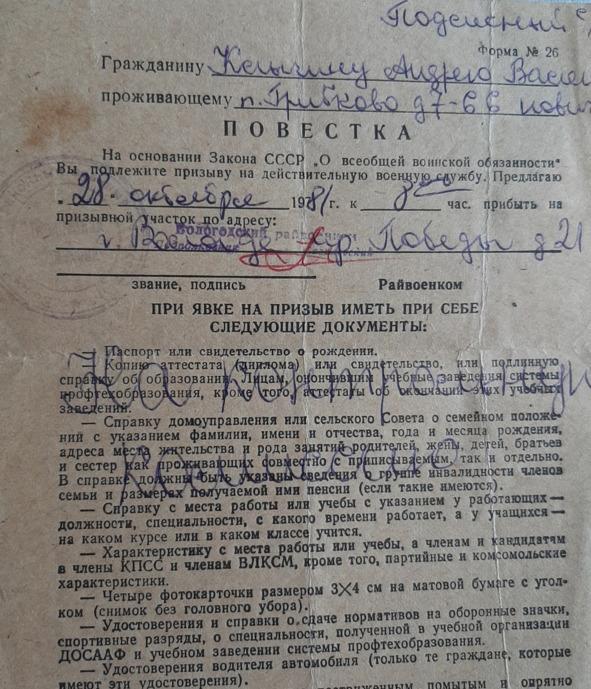 Форма № 26
Гражданину Андрею
проживающему п. Грибково д 7-66
ПОВЕСТКА
На основании Закона СССР „О всеобщей воинской обязанности"
Вы подлежите призыву на действительную военную службу. Предлагаю
28 октября 1981 г. к час. прибыть на
призывной участок по адресу:
Вологодский
г. Вологда пр. Победы д 21
звание, подпись Райвоенком
ПРИ ЯВКЕ НА ПРИЗЫВ ИМЕТЬ ПРИ СЕБЕ
СЛЕДУЮЩИЕ ДОКУМЕНТЫ:
Паспорт или свидетельство о рождении.
Копию аттестата (диплома) или свидетельство, или подлинную
справку об образовании. Лицам, окончившим учебные заведения системы
профтехобразования, кроме того, аттестаты об окончании этих учебных
заведений.
— Справку домоуправления или сельского Совета о семейном положе-
нии с указанием фамилии, имени и отчества, года и месяца рождения,
адреса места жительства и рода занятий родителей, жены, детей, братьев
и сестер как проживающих совместно с приписываемым, так и отдельно.
В справке должны быть указаны сведения о группе инвалидности членов
семьи и размерах получаемой ими пенсии (если такие имеются).
— Справку с места работы или учебы с указанием у работающих—
должности, специальности, с какого времени работает, а у учащихся—
на каком курсе или в каком классе учится.
— Характеристику с места работы или учебы, а членам и кандидатам
в члены КПСС и членам ВЛКСМ, кроме того, партийные и комсомольские
характеристики.
— Четыре фотокарточки размером 3×4 см на матовой бумаге с угол-
ком (снимок без головного убора).
— Удостоверения и справки о сдаче нормативов на оборонные значки,
спортивные разряды, о специальности, полученной в учебной организации
ДОСААФ и учебном заведении системы профтехобразования.
— Удостоверения водителя автомобиля (только те граждане, которые
имеют эти удостоверения).
помытым и опрятно